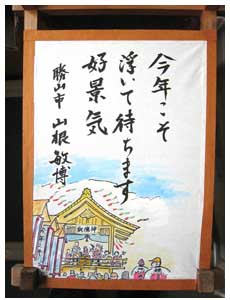 今年こそ
浮いて待ちます
好景気
勝山市 山根敏博